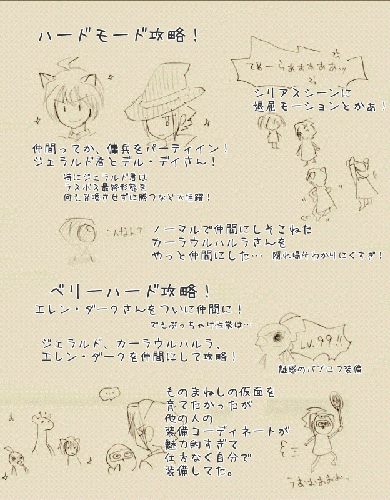 ハードモード攻略！
てめーらぁぁぁぁぁぁッ
シリアスシーンに
爆尻モーションとかぁ！
仲間ってか、傭兵をパーティイン！
ジェラルド君とデル・デイさん！
特にジェラルド君は
ラスボス最終形態を
何もさせずに勝つなど大活躍！
こんなんで
ノーマルで仲間にしそこねた
カーラウハルハラさんを
やっと仲間にした…
隠れ場所わかりにくすぎ！
ベリーハード攻略！
エレン・ダークさんをついに仲間に！
でもぶっちゃけ
ジェラルド、カーラウハルハラ、
エレン・ダークを仲間にして攻略！
LV.99!!
魅惑のパンコフ装備
ものまねしの仮面を
育てたかったが
他の人の
装備コーディネートが
魅力的すぎて
仕方なく自分で
装備してた。
うおおおおぉ、